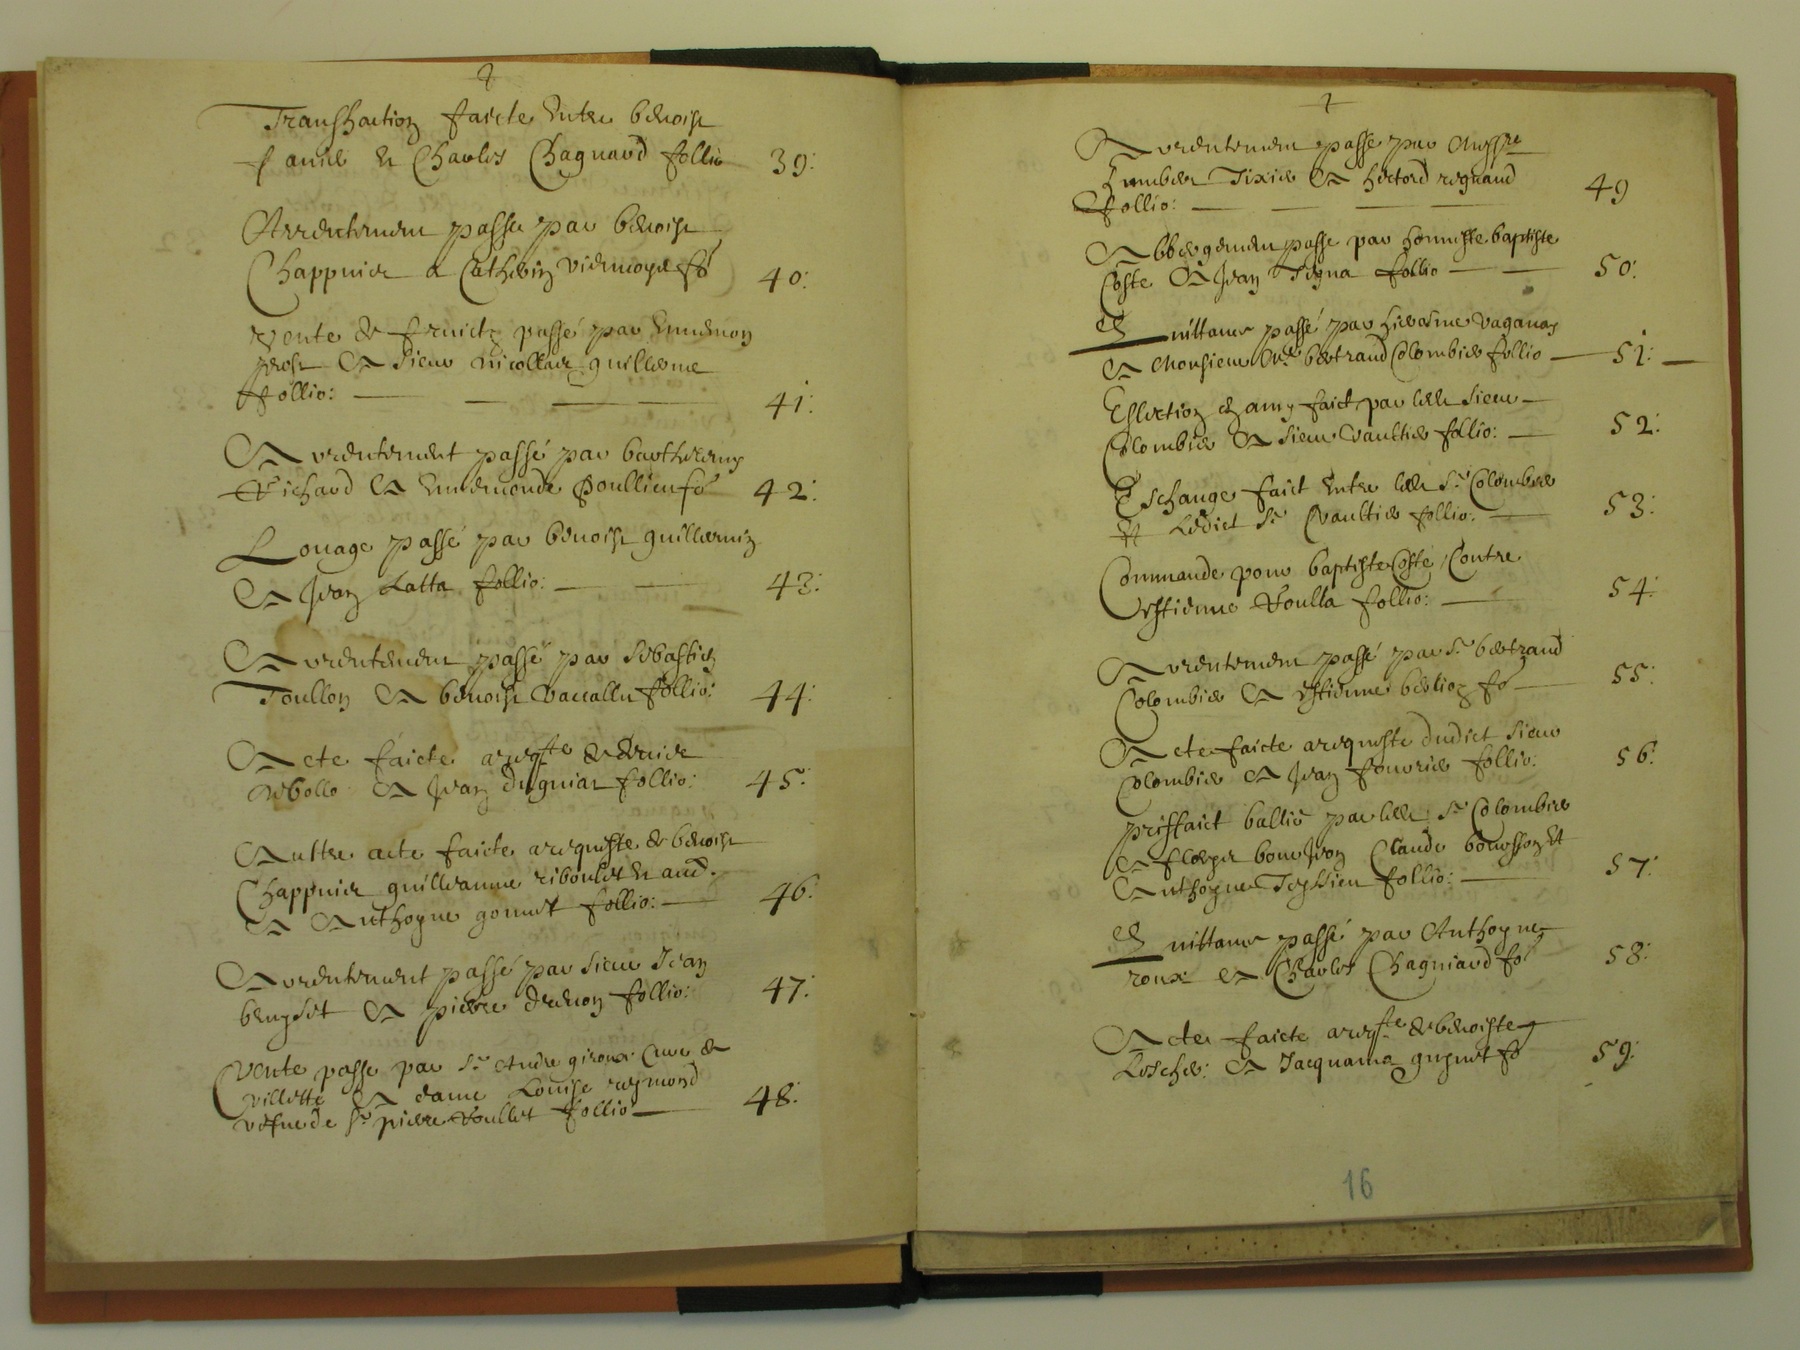 Transhaction faicte Entre benoist
Janin Et Charles Chagnard follio 39:
Arrentement passe par benoist
Chappuier a Catherin viennoys fo 40:
Vente de fruictz passé par Ennemon
prost A sieur nicollas guillerme
ffollio: 41:
Arrentement passé par barthelemy
Richard A Ennemonde poullieu fo 42:
Louage passé par benoist guillermin
A Jean Latta follio: 43:
Arrentement passé par sebastien
Toullon A benoist follio: 44:
Acte faicte a reqste de
A Jean follio: 45:
Aultre acte faicte a requeste de benoist
Chappuier guilleaume riboulet Et aud.
A Anthoyne gonnet follio: 46:
Arrentement passé par sieur Jean
A pierre follio: 47:
Vente passe par Sr Andre giroux Cure de
villette A dame Louise reymond
vefue de Sr pierre Roullet follio 48:
Arrentement passe par Messre
humber Tixier A hectord regnaud
ffollio: 49
Abbergement passe par honneste baptiste
Coste A Jean Tigna follio 50:
Quittance passé par hierosme vaganay
A Monsieur Me bertrand Colombier follio 51:
Eslection damy faict par led. sieur
Colombier A sieur vaultier follio: 52:
Eschange faict Entre led. Sr Colombier
Et Ledict Sr vaultier follio: 53:
Commande pour baptiste Coste Contre
Estienne Roulla follio: 54:
Arrentement passé par Sr bertrand
Colombier A Estienne berlioz fo 55:
Acte faicte a requeste dudict sieur
Colombier A Jean fourrier follio: 56:
priffaict ballie par led. Sr Colombier
A Claude Et
Anthoyne Teyssieu follio: 57:
Quittance passé par Anthoyne
roux A Charles Chagniard fo 58:
Acte faicte a reqste de benoiste
Lescher: A Jacquama guynet fo 59:
16